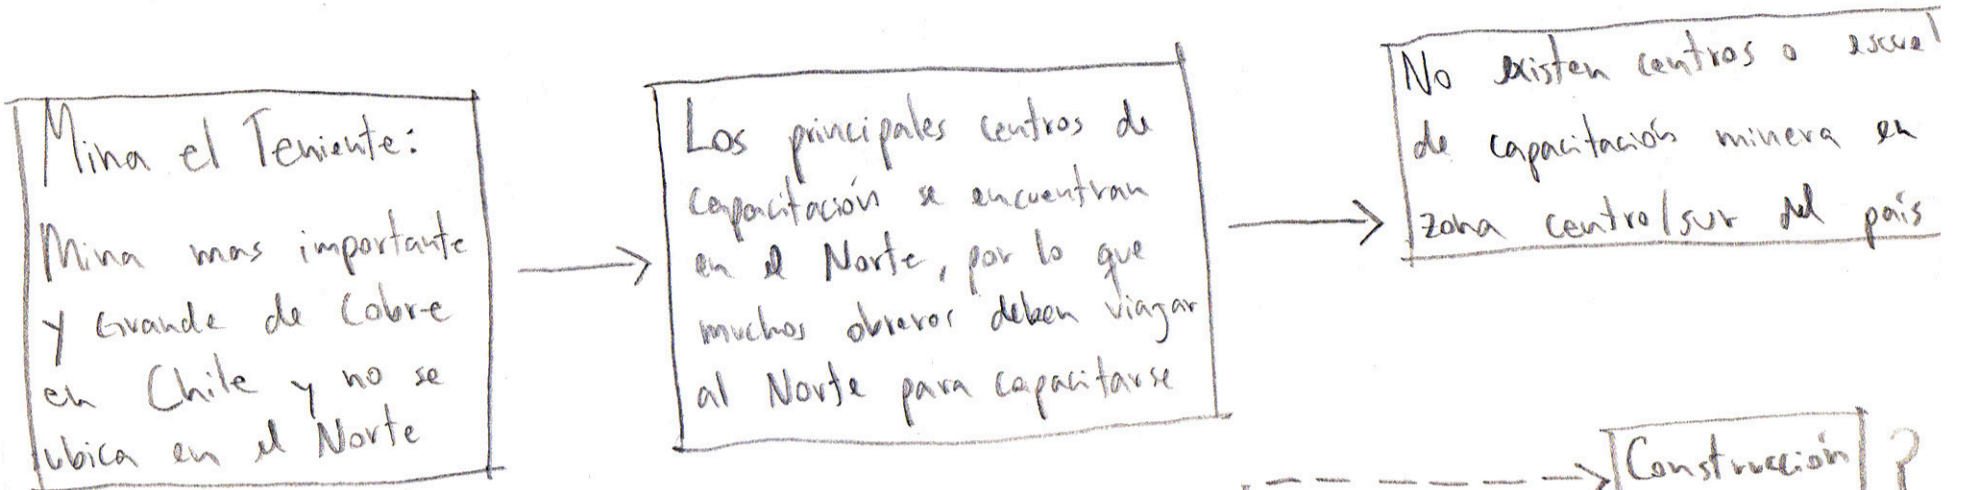 Mina el Teniente:
Mina mas importante
y Grande de Cobre
en Chile y no se
ubica en el Norte
Los principales centros de
capacitación se encuentran
en el Norte, por lo que
muchos obreros deben viajar
al Norte para capacitarse
No existen centros o escuel
de capacitación minera en
zona centro/sur del país
Construcción ?